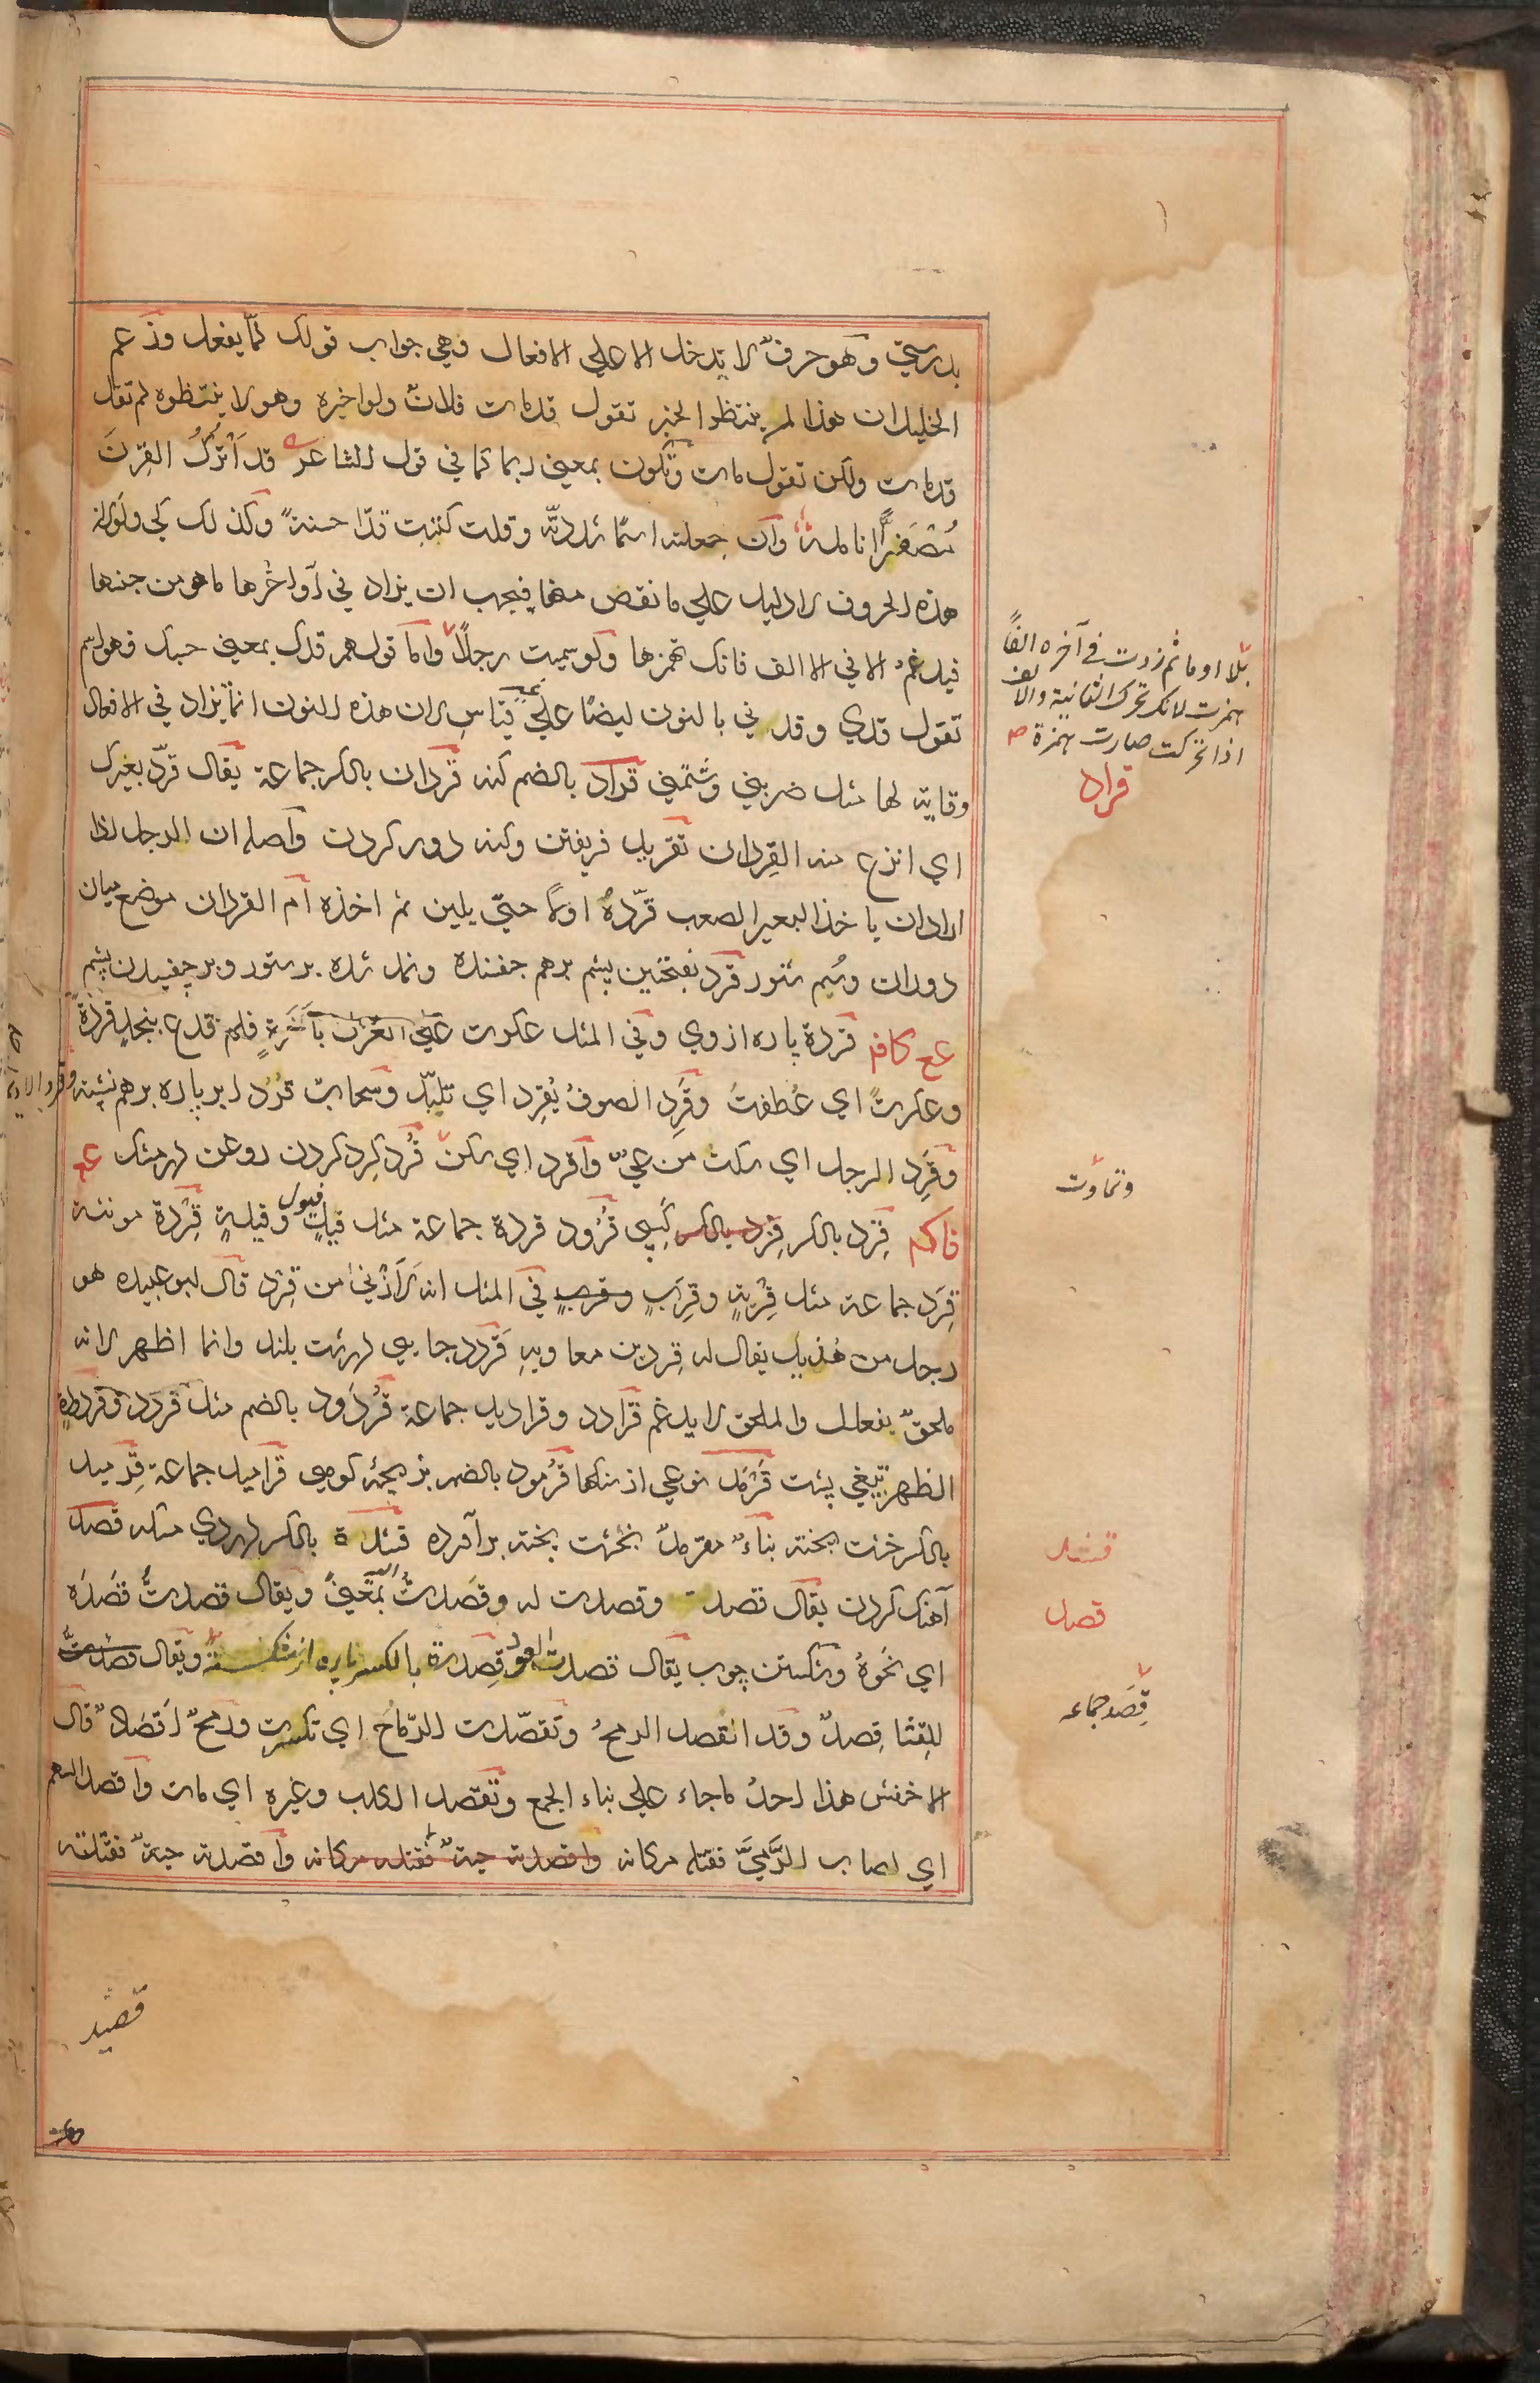 بدرستي وهو حرف لا يدخل الا علي الافعال وهي جواب قولك لمّا يفعل وزعم
الخليل ان هذا لمن ينتظر الخبر تقول قد مات فلان ولو اخبره وهو لا ينتظره لم تقل
قد مات ولكن تقول مات وتكون بمعني ربما كما في قول الشاعر قد اترُكُ القِرنَ
مُصْفَرًّا انامله وان جعلته اسمًا شددته وقلت كتبت قدّا حسنة وكذلك كي ولو لان
هذه الحروف لا دليل علي ما نقص منها فيجب ان يزاد في اواخرها ما هو من جنسها
فيدغم الا في الالف فانك تهمزها ولو سميت رجلاً واما قولهم قدك بمعني حسبك فهو اسم
تقول قدي وقدني بالنون ايضًا علي غير قياس لان هذه النون انما تزاد في الافعال
وقاية لها مثل ضربني وشتمني قراد بالضم كنه قردان بالكسر جماعة يقال قرّد بعيرك
اي انزع منه القِردان تقريد فريفتن وكنه دور كردن واصله ان الرجل اذا
اراد ان ياخذ البعير الصعب قرّدهُ اولًا حتي يلين ثم اخذه ام القردان موضع ميان
دوران وسُم ستور قرد بفتحتين پشم برهم جفنده ونمد شده برستور وبرچفيدن پشم
عع كافم قردة پاره ازوي وفي المثل عكرت علي الغزل باَخَرةٍ فلم تدع بنجدٍ قردةً
وعكرتْ اي عُطفتْ وقَرِد الصوفُ يُقرِد اي تلبّد وسحاب قَرِد ابر پاره پاره برهم نشسته
وقَرِد الرجل اي سكت من عيّ واقرد اي سكن قَرْد گرد كردن روغن لهر مثك عع
فاكم قِرد بالكسر قرد بالكسر كَپي قُرُود قردة جماعة مثل فيلٍ وفيول وفيلةٍ قِردة مونثه
قِرَد جماعة مثل قِربةٍ وقِرَبٍ وقربٍ في المثل انه لَاَزْني من قِرد قال ابو عبيده هو
رجل من هُذيل يقال له قِرد بن معاويه قَردد جايي لهرشت بلند وانما اظهر لانه
ملحق بفعلل والملحق لا يدغم قرادد وقراديد جماعة قُردُود بالضم مثل قردد وقردودة
الظهر تيغي پشت قَرمَد نوعي از سنكها قُرمود بالضم بز بچئه كوهي قراميد جماعة قِرميد
بالكسر خشت پخته بناءٌ مقرمدٌ بخشت پخته برآورده قشدة بالكسر لهردي مسكه قصد
آهنك كردن يقال قصدته وقصدت له وقَصَدتُ اليه بمعنيً ويقال قصدتُ قَصْدَهُ
اي نحوَهُ وشكستن چوب يقال قصدت العود قِصدة بالكسر پاره از شكسته ويقال قصدت
للقِثا قِصدٌ وقد انقصد الرمحُ وتقصّدت الرّماحُ اي تكسرت ورمحٌ اقصادٌ قال
الاخفش هذا احدُ ما جاء علي بناء الجمع وتقصد الكلب وغيره اي مات واقصد السهم
اي اصاب الرَّمِيَّ فقتله مكانه واقصدته حيةٌ فقتله مكانه واقصدته حيةٌ فقتلته
بلا او ما ثم زدت في آخره الفًا
همزت لانك تحرك الثانية والالف
اذا تحركت صارت همزة
قراد
وتماوت
قشد
قصد
قِصَد جماعه
قصيد